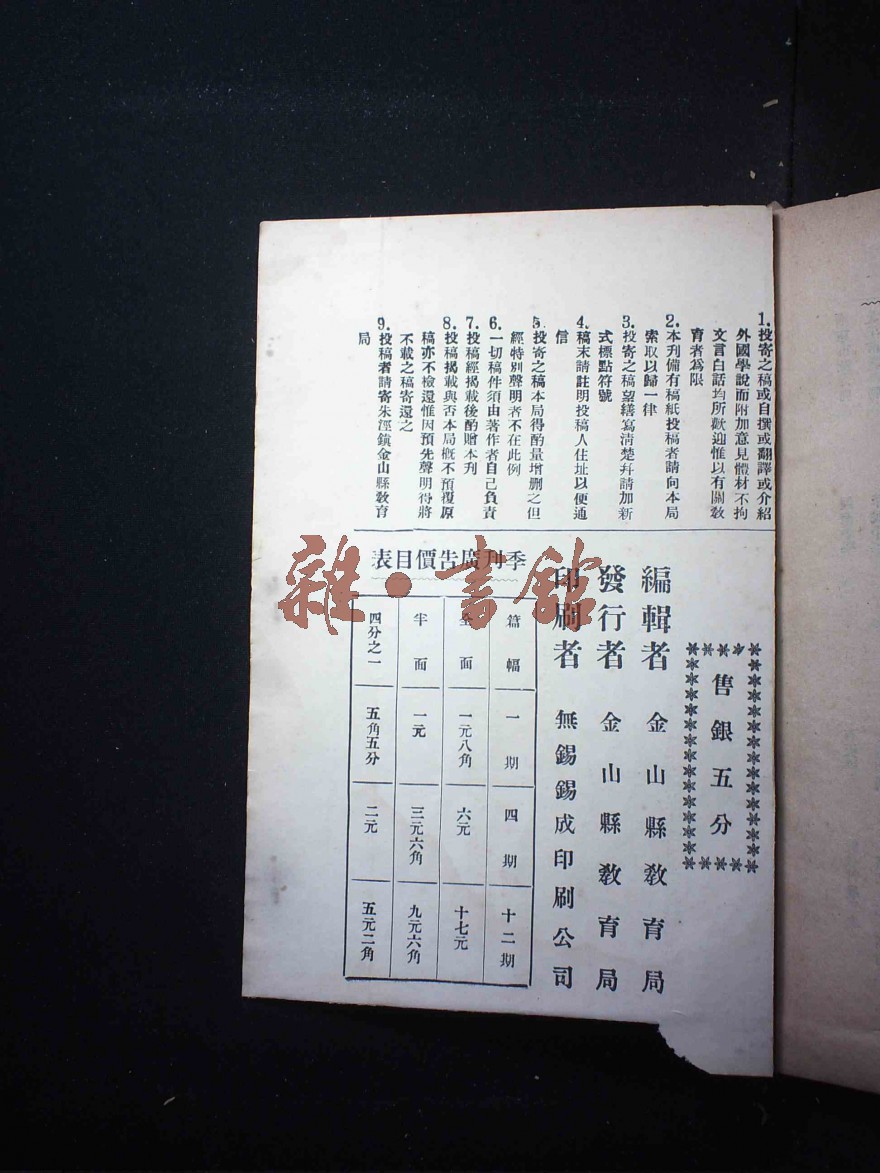 1.投寄之稿或自撰或翻譯或介紹
外國學說而附加意見體材不拘
文言白話均所歡迎惟以有關敎
育者爲限
2.本刋備有稿紙投稿者請向本局
索取以歸一律
3.投寄之稿望繕寫清楚幷請加新
式標點符號
4.稿末請註明投稿人住址以便通
信
5.投寄之稿本局得酌量增删之但
經特別聲明者不在此例
6.一切稿件須由著作者自己負責
7.投稿經揭載後酌贈本刋
8.投稿揭載與否本局槪不預覆原
稿亦不檢還惟因預先聲明得將
不載之稿寄還之
9.投稿者請寄朱涇鎭金山縣敎育
局
售銀五分
編輯者 金山縣敎育局
發行者 金山縣敎育局
印刷者 無錫錫成印刷公司
季刋廣告價目表
篇幅 一期 四期 十二期
全面 一元八角 六元 十七元
半面 一元 三元六角 九元六角
四分之一 五角五分 二元 五元二角
雜·書館